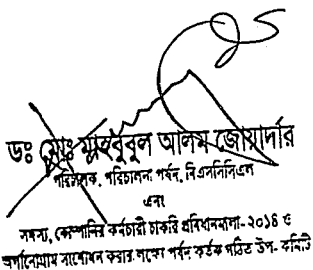 ডঃ মোঃ মাহবুবুল আলম জোয়ার্দার
পরিচালক, পরিচালনা পর্ষদ, বিএসসিসিএল
এবং
সদস্য, কোম্পানির কর্মচারী চাকরি প্রবিধানমালা- ২০১৪ ও
অর্গানোগ্রাম সংশোধন করার লক্ষ্যে পর্ষদ কর্তৃক গঠিত উপ- কমিটি